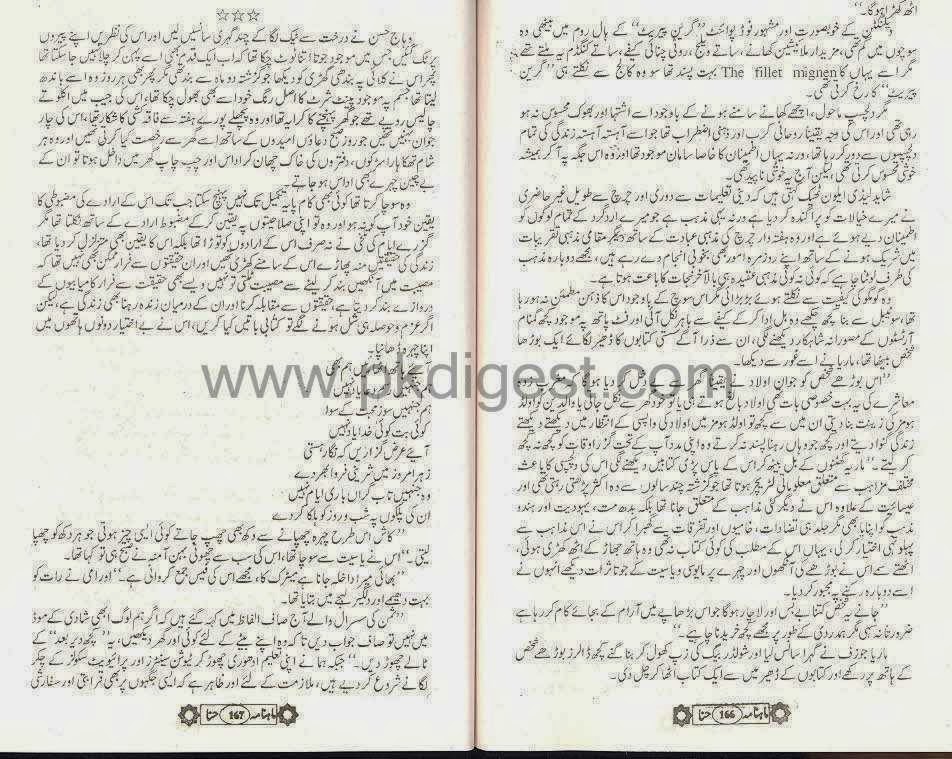 اٹھ کھڑا ہو گا۔“
پنگنٹن کے خوبصورت اور مشہور فوڈ پوائنٹ ”گرین پیریٹ“ کے ہال روم میں بیٹھی وہ
سوچوں میں گم تھی، مزیدار ملائیشین کھانے، ساتے و پیج، روٹی چنائی کیفے، ساتے کنگڈم یہ ملتے تھے
مگر اسے یہاں کا The fillet mignen بہت پسند تھا سو وہ کالج سے نکلتے ہی ”گرین
پیریٹ“ کا رخ کرتی تھی۔
مگر دلچسپ ماحول، اچھے کھانے سامنے ہونے کے باوجود اسے اشتہا اور بھوک محسوس نہ ہو
رہی تھی اور اس کی وجہ یقیناً روحانی کرب اور ذہنی اضطراب تھا جو اسے آہستہ آہستہ زندگی کی تمام
دلچسپیوں سے دور کر رہا تھا، ورنہ یہاں اطمینان کا خاصا سامان موجود تھا اور وہ اس جگہ پہ آ کر ہمیشہ
خوشی محسوس کرتی تھی، لیکن آج یہ خوشی ناپید تھی۔
شاید لیڈی ایلون ٹھیک کہتی ہیں کہ دینی تعلیمات سے دوری اور چرچ سے طویل غیر حاضری
نے میرے خیالات کو پراگندہ کر دیا ہے ورنہ یہی مذہب ہے جو میرے ارد گرد کے تمام لوگوں کو
اطمینان دیے ہوئے ہے اور وہ ہفتہ وار چرچ کی مذہبی عبادت کے ساتھ دیگر مقامی مذہبی تقریبات
میں شریک ہونے کے ساتھ اپنے روزمرہ امور بھی بخوبی انجام دے رہے ہیں، مجھے دوبارہ مذہب
کی طرف لوٹنا چاہیے کہ کوئی نہ کوئی مذہبی عقیدہ ہی بالآخر نجات کا باعث ہوتا ہے۔
وہ گومگو کی کیفیت سے نکلتے ہوئے بڑبڑائی مگر اس سوچ کے باوجود اس کا ذہن مطمئن نہ ہو رہا
تھا، سو ٹیبل سے بنا کچھ چکھے وہ بل ادا کر کے کیفے سے باہر نکل آئی اور فٹ پاتھ پہ موجود کچھ گمنام
آرٹسٹوں کے مصورانہ شاہکار دیکھنے لگی، ان سے ذرا آگے سستی کتابوں کا ڈھیر لگائے ایک بوڑھا
شخص بیٹھا تھا، ماریا نے اسے غور سے دیکھا۔
”اس بوڑھے شخص کو جوان اولاد نے یقیناً گھر سے بے دخل کر دیا ہو گا کہ مغرب زدہ
معاشرے کی یہ بہت خصوصی بات تھی اولاد بالغ ہوتے ہی یا تو خود گھر سے نکل جاتی یا والدین کو اولڈ
ہومز کی زینت بنا دیتی ان میں سے کچھ تو اولڈ ہومز میں اولاد کی واپسی کے انتظار میں دیکھتے دیکھتے
زندگی گنوا دیتے اور کچھ جو وہاں رہنا پسند نہ کرتے وہ اپنی مدد آپ کے تحت گزر اوقات کو کچھ نہ کچھ
کر لیتے۔“ ماریہ گھٹنوں کے بل بیٹھ کر اس کے پاس پڑی کتابیں دیکھنے لگی اس کی دلچسپی کا باعث
مختلف مذاہب سے متعلق معلوماتی لٹریچر ہوتا تھا جو گزشتہ چند سالوں سے وہ اکثر پڑھتی رہتی تھی اور
عیسائیت کے علاوہ اس نے دیگر کئی مذاہب کے متعلق جانا تھا بلکہ بدھ مت، یہودیت اور ہندو
مذہب کو اپنایا بھی مگر جلد ہی تضادات، خامیوں اور تفرقات سے گھبرا کر اس نے اس مذاہب سے
پہلو تہی اختیار کر لی، یہاں اس کے مطلب کی کوئی کتاب نہ تھی وہ ہاتھ جھاڑ کے اٹھ کھڑی ہوئی،
اٹھتے سے اس نے بوڑھے کی آنکھوں اور چہرے پر مایوسی و یاسیت کے جو تاثرات دیکھے انہوں نے
اسے دوبارہ رکنے پہ مجبور کر دیا۔
”جانے یہ شخص کتنا بے بس اور لاچار ہو گا جو اس بڑھاپے میں آرام کے بجائے کام کر رہا ہے
ضرورتاً نہ سہی مگر ہمدردی کے طور پر مجھے کچھ خریدنا چاہیے۔“
ماریا جوزف نے گہرا سانس لیا اور شولڈر بیگ کی زپ کھول کر بنا گنے کچھ ڈالرز بوڑھے شخص
کے ہاتھ پر رکھے اور کتابوں کے ڈھیر میں سے ایک کتاب اٹھا کر چل دی۔
ماہنامہ حنا 166
☆☆☆
وہاج حسن نے درخت سے ٹیک لگا کے چند گہری سانسیں لیں اور اس کی نظریں اپنے پیروں
پر ٹک گئیں، جس میں موجود جوتا اتنا ٹوٹ چکا تھا کہ اب ایک قدم بھی اسے پہن کر چلا نہیں جا سکتا تھا
پھر اس نے کلائی پہ بندھی گھڑی کو دیکھا جو گزشتہ دو ماہ سے بند تھی مگر پھر بھی ہر روز وہ اسے باندھ
لیتا تھا، جسم پہ موجود پینٹ شرٹ کا اصل رنگ خود اسے بھی بھول چکا تھا، اس کی جیب میں اکلوتے
چالیس روپے تھے جو گھر پہنچنے کا کرایہ تھا اور وہ پچھلے پورے ہفتہ سے فاقہ کشی کا شکار تھا، اس کی چار
جوان بہنیں تھیں جو روز صبح دعاؤں امیدوں کے ساتھ اسے گھر سے رخصت کیا کرتی تھیں اور وہ ہر
شام تھکا ہارا سڑکوں، دفتروں کی خاک چھان کر اداس اور چپ چاپ گھر میں داخل ہوتا تو ان کے
بے چین چہرے بھی اداس ہو جاتے۔
وہ سوچا کرتا تھا کوئی بھی کام پایہ تکمیل تک نہیں پہنچ سکتا جب تک اس کے ارادے کی مضبوطی کا
یقین خود آپ کو نہ ہو اور وہ تو اپنی صلاحیتوں پہ یقین کر کے مضبوط ارادے کے ساتھ نکلتا تھا مگر
گزرے ایام کی تلخی نے نہ صرف اس کے ارادوں کو توڑا تھا بلکہ اس کا یقین بھی متزلزل کر دیا تھا،
زندگی کی حقیقتیں منہ پھاڑے اس کے سامنے کھڑی تھیں اور ان حقیقتوں سے فرار ممکن بھی نہیں تھا کہ
مصیبت میں آنکھیں بند کر لینے سے مصیبت ٹلتی تو نہیں ویسے بھی حقیقت سے فرار کامیابیوں کے
دروازے بند کر دیتا ہے، حقیقتوں سے مقابلہ کرنا اور ان کے درمیان زندہ رہنا بھی زندگی ہے، لیکن
اگر عزم و حوصلہ ہی شل ہونے لگے تو کتابی باتیں کیا کریں، اس نے بے اختیار دونوں ہاتھوں میں
اپنا چہرہ ڈھانپا۔
ہم بھی
یاد نہیں
ہم جنہیں سوز محبت کے سوا
کوئی بت کوئی خدا یاد نہیں
آئیے عرض گزاریں کہ نگار ہستی
زہر امروز میں شیرینی فردا بھر دے
وہ جنہیں تاب گراں باری ایام نہیں
ان کی پلکوں پہ شب و روز کو ہلکا کر دے
”کاش اس طرح چہرہ چھپانے سے دکھ بھی چھپ جاتے کوئی ایسی چیز ہوتی جو ہر دکھ کو چھپا
لیتی۔“ اس نے یاسیت سے سوچا تھا، اس کی سب سے چھوٹی بہن آمنہ نے صبح ہی تو کہا تھا۔
”بھائی میرا داخلہ جانا ہے میٹرک کا، مجھے اس کی فیس جمع کروانی ہے۔“ اور امی نے رات کو
بہت دھیمے اور دلگیر لہجے میں بتایا تھا۔
”ثمن کی سسرال والے آج صاف الفاظ میں کہہ گئے ہیں کہ اگر ہم لوگ ابھی شادی کے موڈ
میں نہیں تو صاف جواب دیں تاکہ وہ اپنے بیٹے کے لئے کوئی اور گھر دیکھیں، یہ ”کچھ دیر بعد“ کے
نالے چھوڑ دیں۔“ جبکہ ہما نے اپنی تعلیم ادھوری چھوڑ کر ٹیوشن سینٹرز اور پرائیویٹ سکولز کے چکر
لگانے شروع کر دیے ہیں، ملازمت کے لئے اور ظاہر ہے کہ ایسی جگہوں پر بھی قرابتی اور سفارشی
ماہنامہ حنا 167
www.pkdigest.com